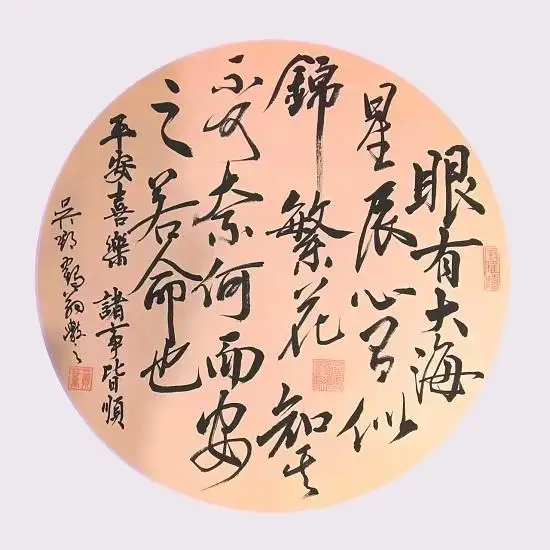 眼有大海
星辰心有似
錦繁花知其
不可奈何而安
之若命也
平安喜樂 諸事皆順
吳 翁